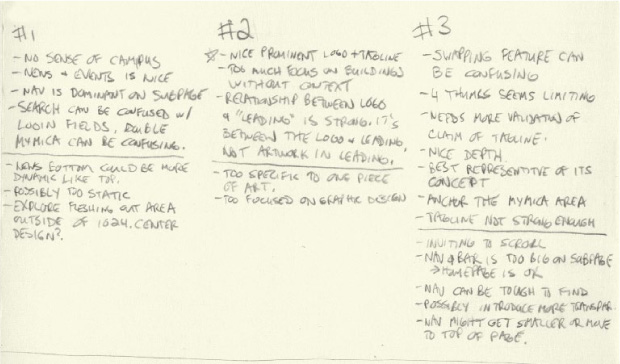 #1
- NO SENSE OF CAMPUS
- NEWS + EVENTS IS NICE
- NAV IS DOMINANT ON SUBPAGE
- SEARCH CAN BE CONFUSED W/
LOGIN FIELDS, DOUBLE
MYMICA CAN BE CONFUSING.
- NEWS BOTTOM COULD BE MORE
DYNAMIC LIKE TOP.
- POSSIBLY TOO STATIC
- EXPLORE FLESHING OUT AREA
OUTSIDE OF 1024. CENTER
DESIGN?
#2
☆ - NICE PROMINENT LOGO + TAGLINE
- TOO MUCH FOCUS ON BUILDINGS
WITHOUT CONTEXT
- RELATIONSHIP BETWEEN LOGO
& "LEADING" IS STRONG. IT'S
BETWEEN THE LOGO & LEADING,
NOT ARTWORK IN LEADING.
- TOO SPECIFIC TO ONE PIECE
OF ART.
- TOO FOCUSED ON GRAPHIC DESIGN
#3
- SWAPPING FEATURE CAN
BE CONFUSING
- 4 THUMBS SEEMS LIMITING
- NEEDS MORE VALIDATION OF
CLAIM OF TAGLINE.
- NICE DEPTH.
- BEST REPRESENTITVE OF ITS
CONCEPT
- ANCHOR THE MYMICA AREA
- TAGLINE NOT STRONG ENOUGH
- INVITING TO SCROLL
- NAV BAR IS TOO BIG ON SUBPAGE
→ HOMEPAGE IS OK
- NAV CAN BE TOUGH TO FIND
- POSSIBLY INTRODUCE MORE TRANSPAR.
- NAV MIGHT GET SMALLER OR MOVE
TO TOP OF PAGE.